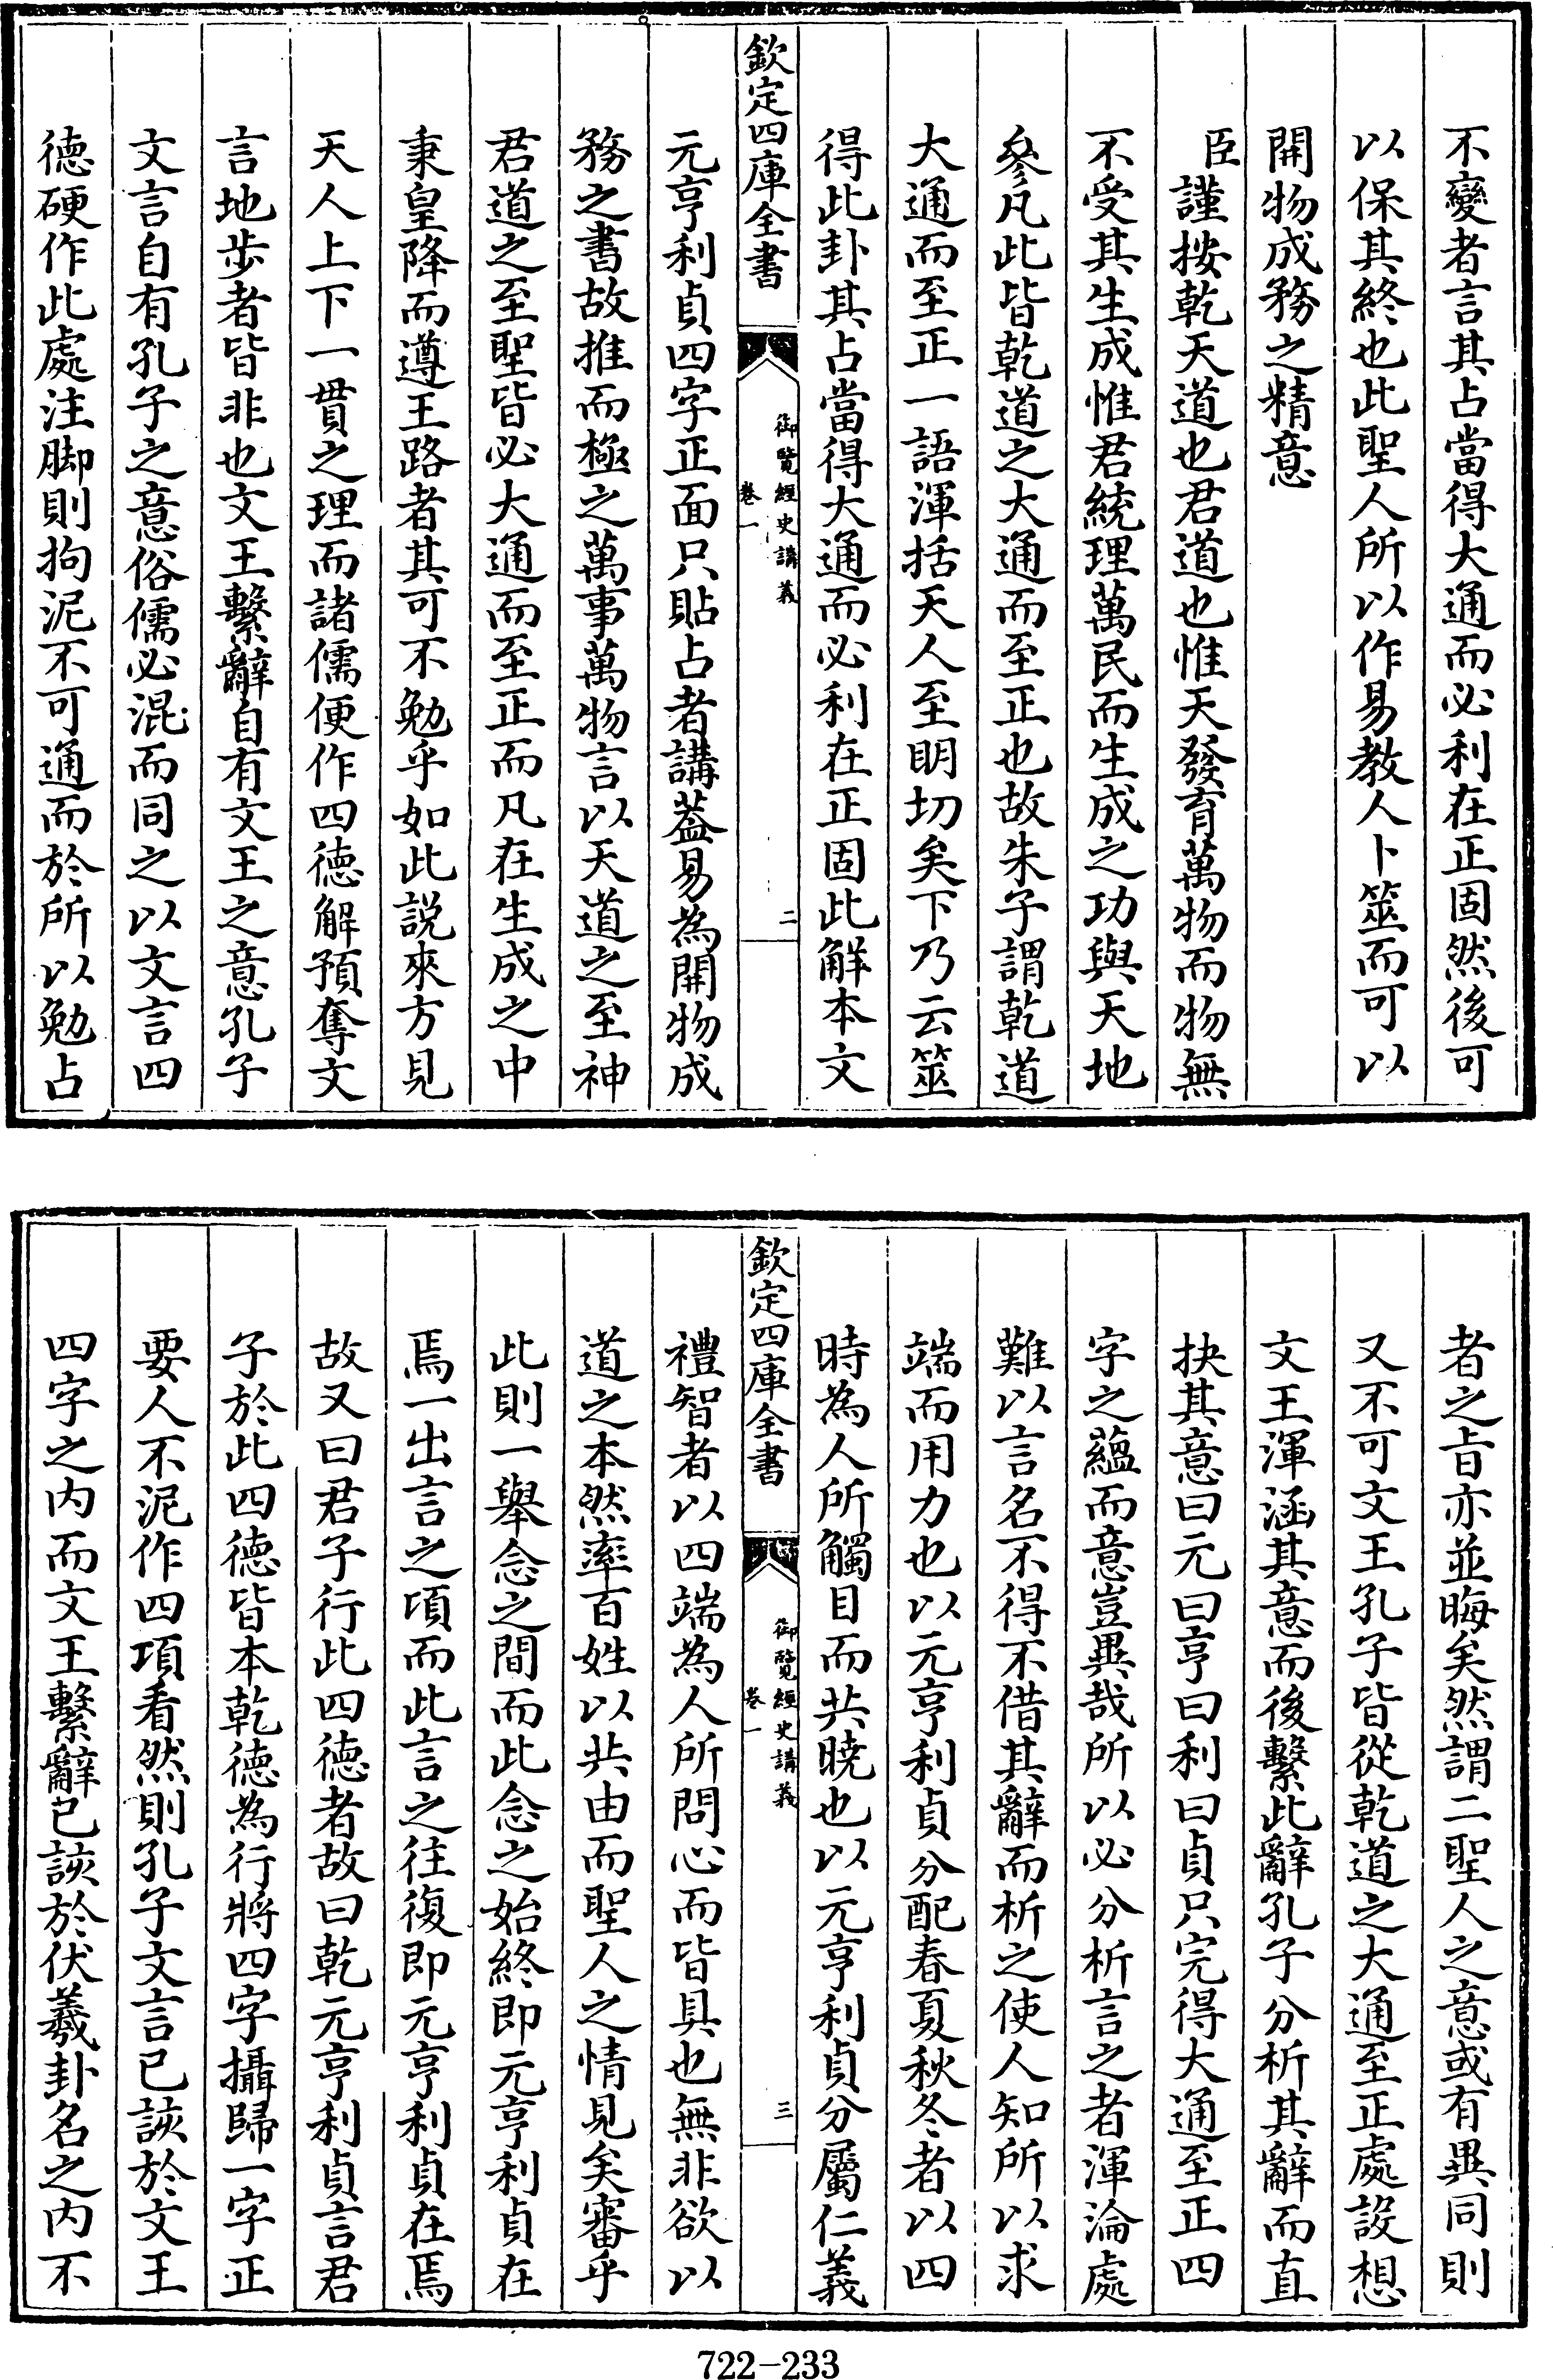 不變者言其占當得大通而必利在正固然後可
以保其終也此聖人所以作易教人卜筮而可以
開物成務之精意
臣謹按乾天道也君道也惟天發育萬物而物無
不受其生成惟君統理萬民而生成之功與天地
參凡此皆乾道之大通而至正也故朱子謂乾道
大通而至正一語渾括天人至明切矣下乃云筮
得此卦其占當得大通而必利在正固此解本文
欽定四庫全書
御覽經史講義
卷一
二
元亨利貞四字正面只貼占者講葢易為開物成
務之書故推而極之萬事萬物言以天道之至神
君道之至聖皆必大通而至正而凡在生成之中
秉皇降而遵王路者其可不勉乎如此説來方見
天人上下一貫之理而諸儒便作四德解預奪文
言地步者皆非也文王繫辭自有文王之意孔子
文言自有孔子之意俗儒必混而同之以文言四
德硬作此處注脚則拘泥不可通而於所以勉占
者之旨亦並晦矣然謂二聖人之意或有異同則
又不可文王孔子皆從乾道之大通至正處設想
文王渾涵其意而後繫此辭孔子分析其辭而直
抉其意曰元曰亨曰利曰貞只完得大通至正四
字之蘊而意豈異哉所以必分析言之者渾淪處
難以言名不得不借其辭而析之使人知所以求
端而用力也以元亨利貞分配春夏秋冬者以四
時為人所觸目而共曉也以元亨利貞分屬仁義
欽定四庫全書
御覽經史講義
卷一
三
禮智者以四端為人所問心而皆具也無非欲以
道之本然率百姓以共由而聖人之情見矣審乎
此則一舉念之間而此念之始終即元亨利貞在
焉一出言之項而此言之往復即元亨利貞在焉
故又曰君子行此四德者故曰乾元亨利貞言君
子於此四德皆本乾德為行將四字攝歸一字正
要人不泥作四項看然則孔子文言已該於文王
四字之内而文王繫辭已該於伏羲卦名之内不
722-233